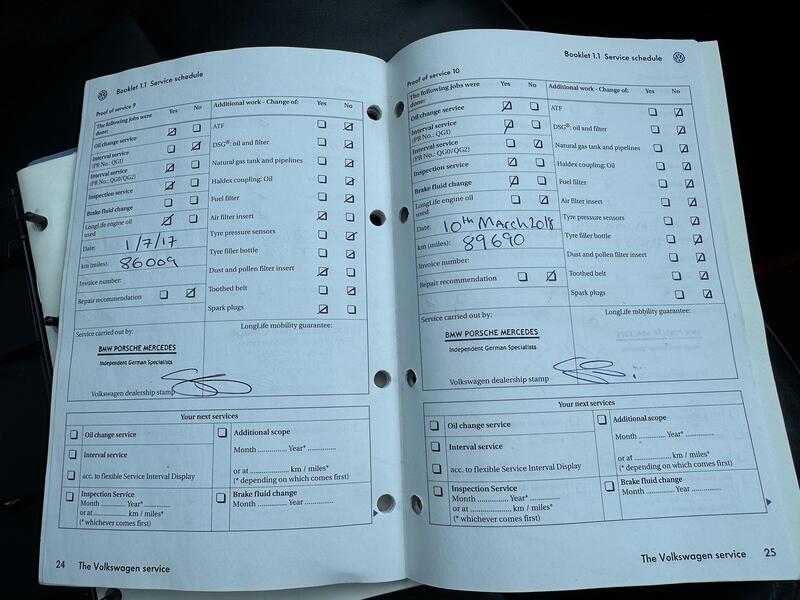 Booklet 1.1 Service schedule
Proof of service 9
The following jobs were done: Yes No
Oil change service
Interval service
(PR No.: QG1)
Interval service
(PR No.: QG0/QG2)
Inspection service
Brake fluid change
LongLife engine oil
used
Date: 1/7/17
km (miles): 86009
Invoice number:
Repair recommendation
Additional work - Change of: Yes No
ATF
DSG®: oil and filter
Natural gas tank and pipelines
Haldex coupling: Oil
Fuel filter
Air filter insert
Tyre pressure sensors
Tyre filler bottle
Dust and pollen filter insert
Toothed belt
Spark plugs
Service carried out by:
LongLife mobility guarantee:
BMW PORSCHE MERCEDES
Independent German Specialists
Volkswagen dealership stamp
Your next services
Oil change service
Interval service
acc. to flexible Service Interval Display
Inspection Service
Month .......... Year* ..........
or at .................... km / miles*
(* whichever comes first)
Additional scope
Month ............ Year* ............
or at .................... km / miles*
(* depending on which comes first)
Brake fluid change
Month ............ Year ............
24 The Volkswagen service
Booklet 1.1 Service schedule
Proof of service 10
The following jobs were
done: Yes No
Oil change service
Interval service
(PR No.: QG1)
Interval service
(PR No.: QG0/QG2)
Inspection service
Brake fluid change
LongLife engine oil
used
Date: 10th March 2018
km (miles): 89690
Invoice number:
Repair recommendation
Additional work - Change of: Yes No
ATF
DSG®: oil and filter
Natural gas tank and pipelines
Haldex coupling: Oil
Fuel filter
Air filter insert
Tyre pressure sensors
Tyre filler bottle
Dust and pollen filter insert
Toothed belt
Spark plugs
Service carried out by:
LongLife mobility guarantee:
BMW PORSCHE MERCEDES
Independent German Specialists
Volkswagen dealership stamp
Your next services
Oil change service
Interval service
acc. to flexible Service Interval Display
Inspection Service
Month .......... Year* ..........
or at .................... km / miles*
(* whichever comes first)
Additional scope
Month ............ Year* ............
or at .................... km / miles*
(* depending on which comes first)
Brake fluid change
Month ............ Year ............
The Volkswagen service 25